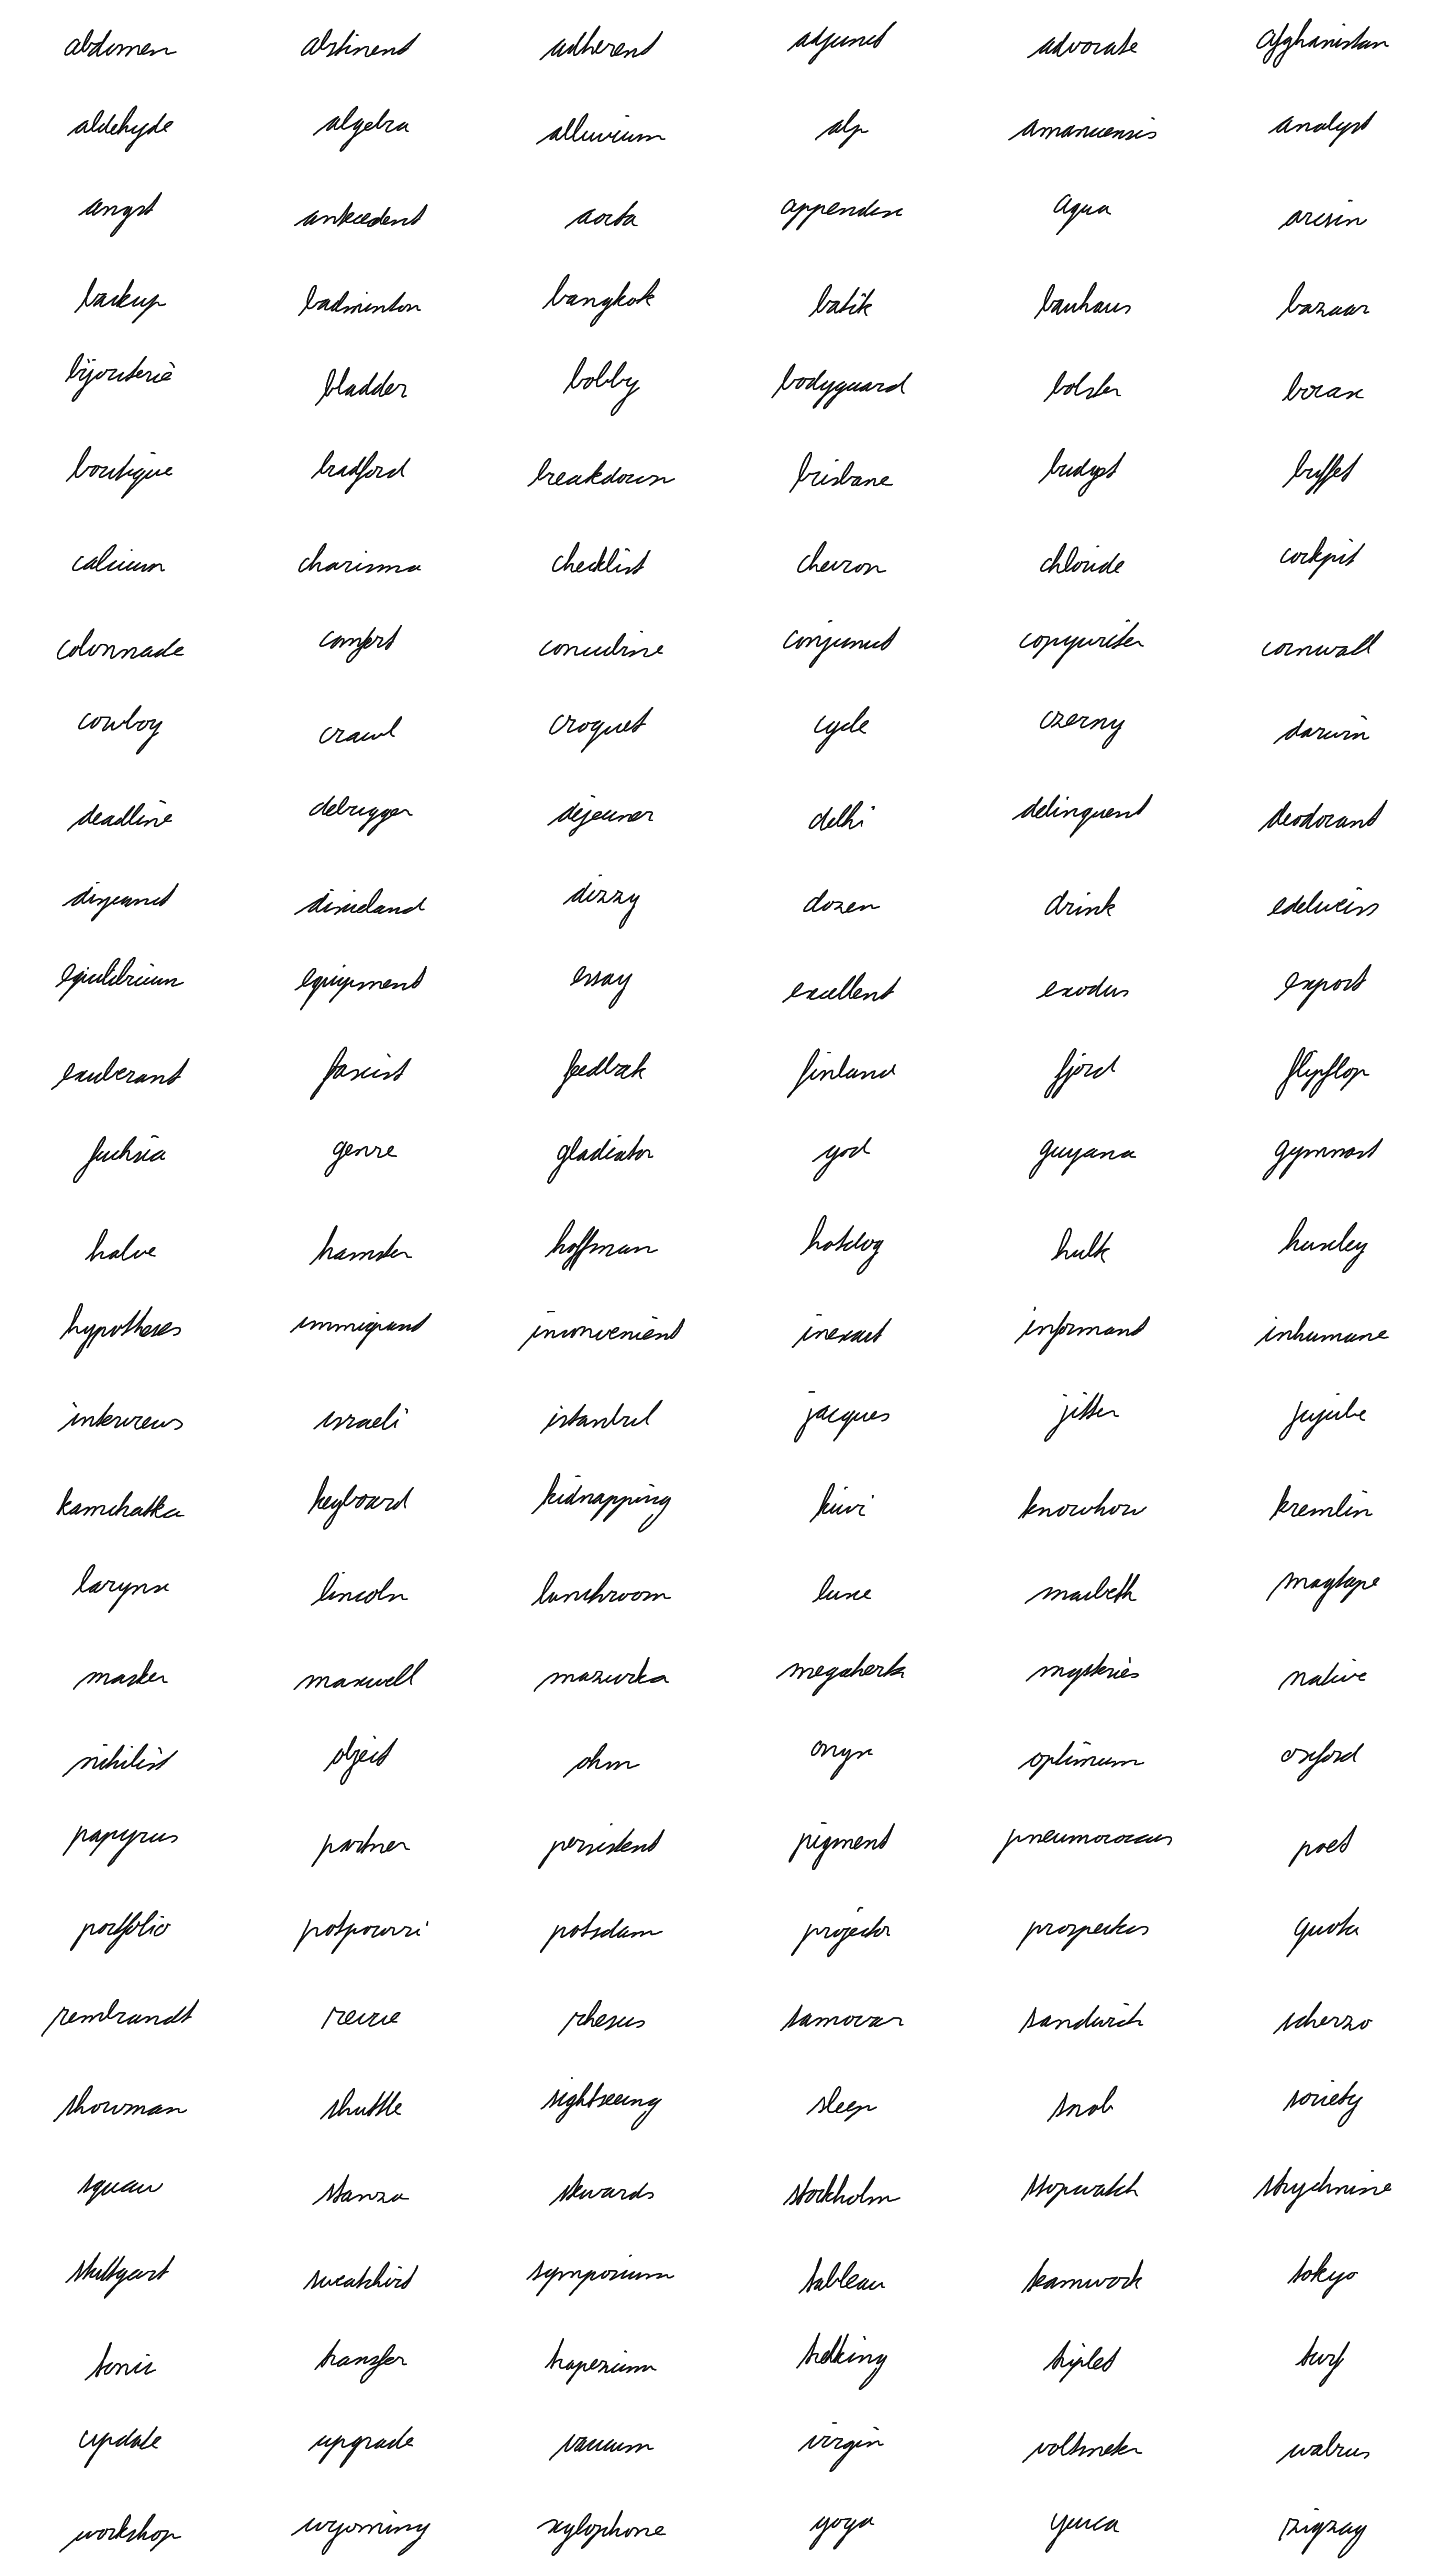 abdomen abstinent adherent adjunct advocate Afghanistan
aldehyde algebra alluvium alp amanuensis analyst
angst antecedent aorta appendix aqua arcsin
backup badminton bangkok batik bauhaus bazaar
bijouterie bladder bobby bodyguard bolster borax
boutique bradford breakdown brisbane budget buffet
calcium charisma checklist chevron chloride cockpit
colonnade comfort concubine conjunct copywriter cornwall
cowboy crawl croquet cycle czerny darwin
deadline debugger dejeuner delhi delinquent deodorant
disjunct dixieland dizzy dozen drink edelweiss
equilibrium equipment essay excellent exodus export
exuberant fascist feedback finland fjord flipflop
fuchsia genre gladiator god guyana gymnast
halve hamster hoffman hotdog hulk huxley
hypotheses immigrant inconvenient inexact informant inhumane
interviews israeli istanbul jacques jitter jujube
kamchatka keyboard kidnapping kiwi knowhow kremlin
larynx lincoln lunchroom luxe macbeth magtape
master maxwell mazurka megahertz mysteries native
nihilist object ohm onyx optimum oxford
papyrus partner persistent pigment pneumococcus poet
portfolio potpourri potsdam projector prospectus quota
rembrandt revue rhesus samovar sandwich scherzo
showman shuttle sightseeing sleep snob society
squaw stanza stewards stockholm stopwatch strychnine
stuttgart sweatshirt symposium tableau teamwork tokyo
tonic transfer trapezium trekking triplet turf
update upgrade vacuum virgin voltmeter walrus
workshop wyoming xylophone yoga yucca zigzag